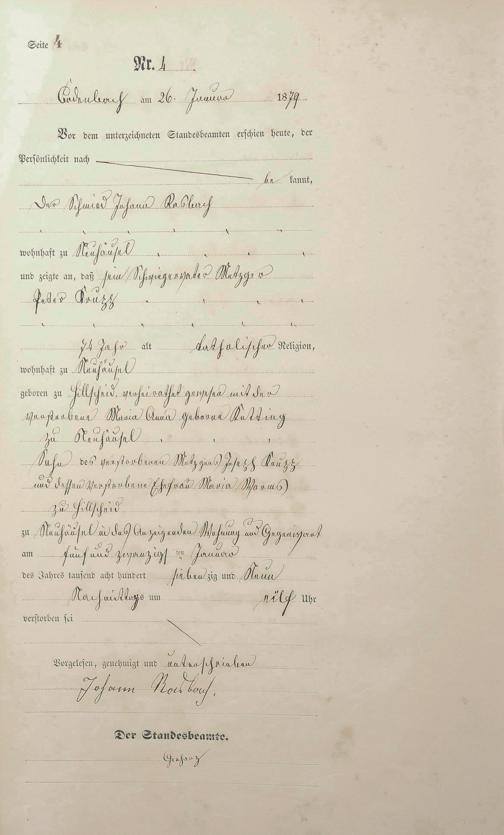 Seite 4
Nr. 4
Cadenbach am 26. Januar 1879
Vor dem unterzeichneten Standesbeamten erschien heute, der
Persönlichkeit nach
be kannt,
Der Schmied Johann Rosbach
wohnhaft zu Neuhäusel
und zeigte an, daß sein Schwiegervater Metzger
Peter
74 Jahr alt katholischer Religion,
wohnhaft zu Neuhäusel
geboren zu Hillscheid, verheirathet gewesen mit der
verstorbene Maria Anna geborene
zu Neuhäusel
Sohn des verstorbenen Metzgers Joseph
und dessen verstorbene Ehefrau Maria
zu Hillscheid
zu Neuhäusel in des Anzeigenden Wohnung und Gegenwart
am fünf und zwanzigsten Januar
des Jahres tausend acht hundert sieben zig und Neun
Nachmittags um eilf Uhr
verstorben sei
Vorgelesen, genehmigt und unterschrieben
Johann Rosbach.
Der Standesbeamte.